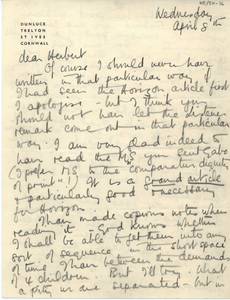 DUNLUCE
TRELYON
ST IVES
CORNWALL
Wednesday
April 8th
dear Herbert
Of course I should never have
written in that particular way if
I had seen the Horizon article first
I apologise - but I think you
should not have let the
remark come out in that particular
way. I am very glad indeed to
have read the MS you sent Gabo
(I prefer MS to the comparative dignity
of print - !) It is a grand article
& particularly good & necessary
for Horizon
I have made copious notes when
reading it - God knows whether
I shall be able to get them into any
sort of sequence in the short space
of time I have between the demands
of 4 children. But I'll try. What
a pity we are separated - but in